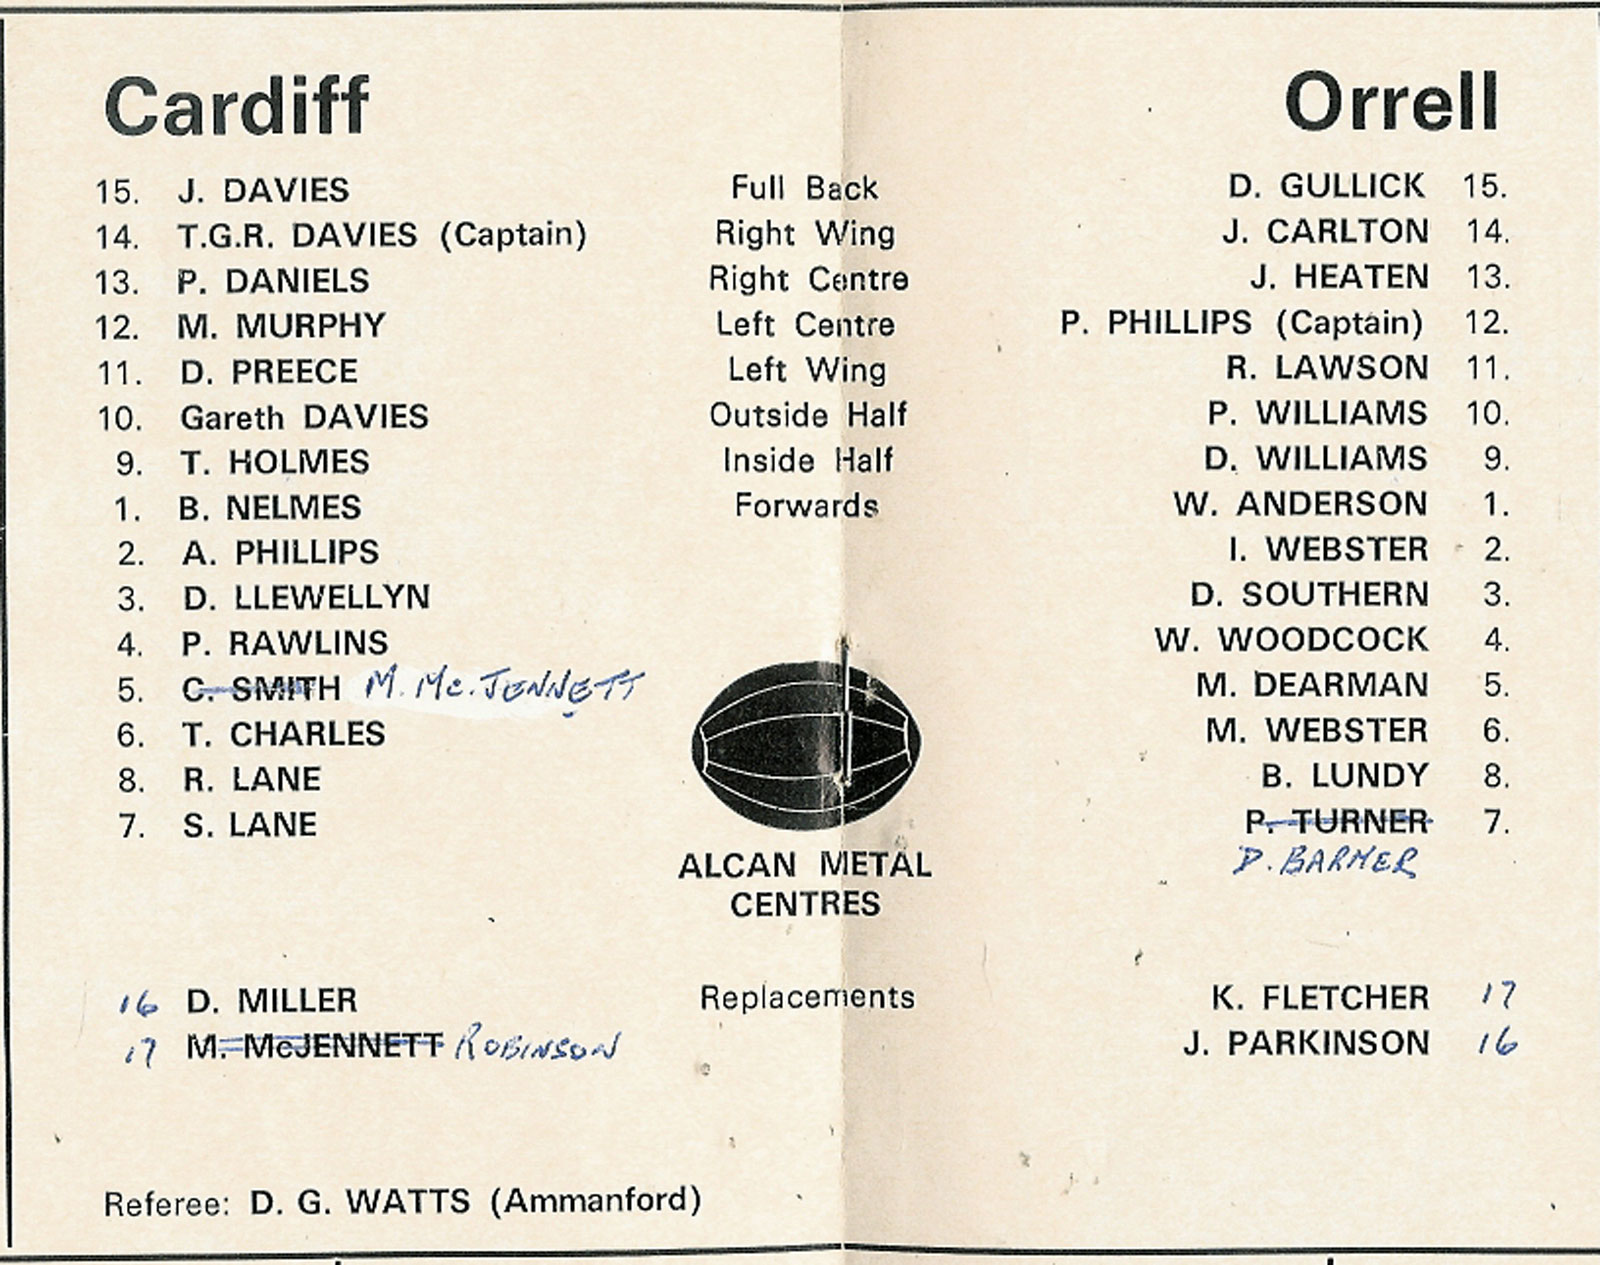 Cardiff Orrell
15. J. DAVIES Full Back D. GULLICK 15.
14. T.G.R. DAVIES (Captain) Right Wing J. CARLTON 14.
13. P. DANIELS Right Centre J. HEATEN 13.
12. M. MURPHY Left Centre P. PHILLIPS (Captain) 12.
11. D. PREECE Left Wing R. LAWSON 11.
10. Gareth DAVIES Outside Half P. WILLIAMS 10.
9. T. HOLMES Inside Half D. WILLIAMS 9.
1. B. NELMES Forwards W. ANDERSON 1.
2. A. PHILLIPS I. WEBSTER 2.
3. D. LLEWELLYN D. SOUTHERN 3.
4. P. RAWLINS W. WOODCOCK 4.
5. C. SMITH M. Mc. JENNETT M. DEARMAN 5.
6. T. CHARLES M. WEBSTER 6.
8. R. LANE B. LUNDY 8.
7. S. LANE P. TURNER 7.
D. BARMER
ALCAN METAL
CENTRES
16 D. MILLER Replacements K. FLETCHER 17
17 M. McJENNETT ROBINSON J. PARKINSON 16
Referee: D. G. WATTS (Ammanford)